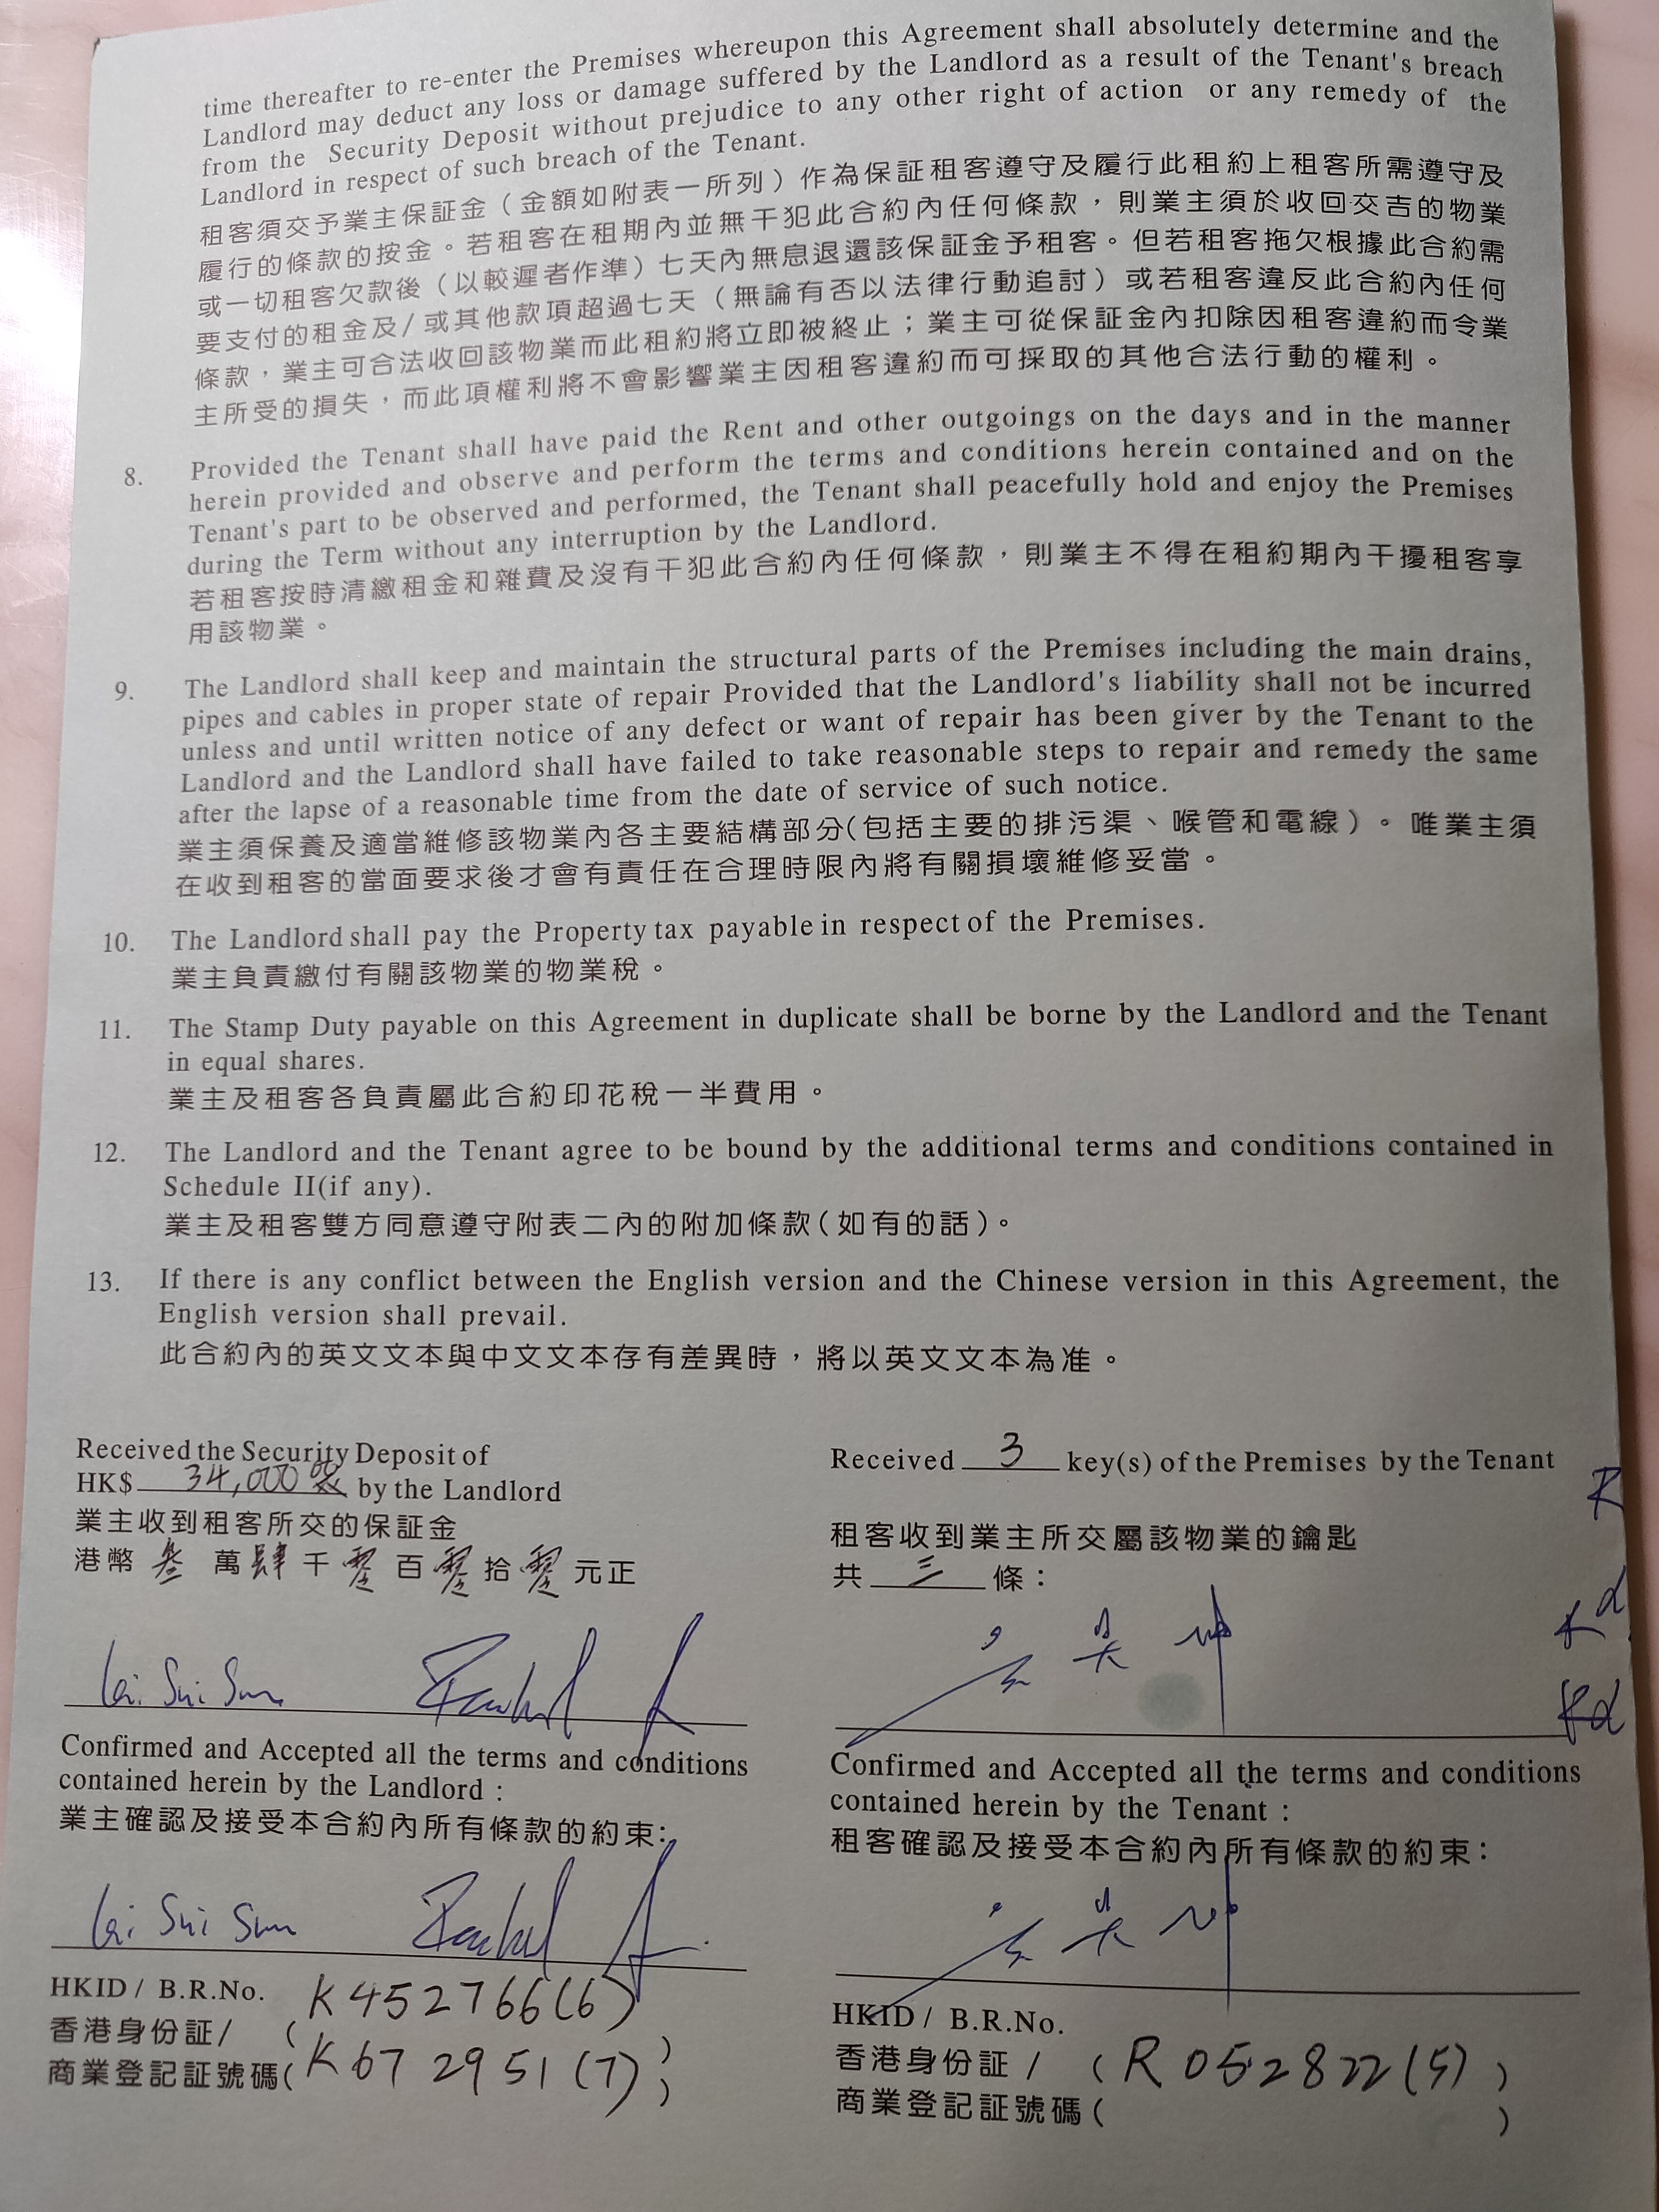 time thereafter to re-enter the Premises whereupon this Agreement shall absolutely determine and the
Landlord may deduct any loss or damage suffered by the Landlord as a result of the Tenant's breach
from the Security Deposit without prejudice to any other right of action or any remedy of the
Landlord in respect of such breach of the Tenant.
租客須交予業主保証金（金額如附表一所列）作為保証租客遵守及履行此租約上租客所需遵守及
履行的條款的按金。若租客在租期內並無干犯此合約內任何條款，則業主須於收回交吉的物業
或一切租客欠款後（以較遲者作準）七天內無息退還該保証金予租客。但若租客拖欠根據此合約需
要支付的租金及/或其他款項超過七天（無論有否以法律行動追討）或若租客違反此合約內任何
條款，業主可合法收回該物業而此租約將立即被終止；業主可從保証金內扣除因租客違約而令業
主所受的損失，而此項權利將不會影響業主因租客違約而可採取的其他合法行動的權利。
8. Provided the Tenant shall have paid the Rent and other outgoings on the days and in the manner
herein provided and observe and perform the terms and conditions herein contained and on the
Tenant's part to be observed and performed, the Tenant shall peacefully hold and enjoy the Premises
during the Term without any interruption by the Landlord.
若租客按時清繳租金和雜費及沒有干犯此合約內任何條款，則業主不得在租約期內干擾租客享
用該物業。
9. The Landlord shall keep and maintain the structural parts of the Premises including the main drains,
pipes and cables in proper state of repair Provided that the Landlord's liability shall not be incurred
unless and until written notice of any defect or want of repair has been giver by the Tenant to the
Landlord and the Landlord shall have failed to take reasonable steps to repair and remedy the same
after the lapse of a reasonable time from the date of service of such notice.
業主須保養及適當維修該物業內各主要結構部分(包括主要的排污渠、喉管和電線)。唯業主須
在收到租客的當面要求後才會有責任在合理時限內將有關損壞維修妥當。
10. The Landlord shall pay the Property tax payable in respect of the Premises.
業主負責繳付有關該物業的物業稅。
11. The Stamp Duty payable on this Agreement in duplicate shall be borne by the Landlord and the Tenant
in equal shares.
業主及租客各負責屬此合約印花稅一半費用。
12. The Landlord and the Tenant agree to be bound by the additional terms and conditions contained in
Schedule II(if any).
業主及租客雙方同意遵守附表二內的附加條款(如有的話)。
13. If there is any conflict between the English version and the Chinese version in this Agreement, the
English version shall prevail.
此合約內的英文文本與中文文本存有差異時，將以英文文本為准。
Received the Security Deposit of
HK$ 34,000 by the Landlord
業主收到租客所交的保証金
港幣 叁 萬 肆 千 零 百 零 拾 零 元正
Received 3 key(s) of the Premises by the Tenant
租客收到業主所交屬該物業的鑰匙
共 三 條：
Lai Sui Sum
Confirmed and Accepted all the terms and conditions
contained herein by the Landlord :
業主確認及接受本合約內所有條款的約束：
Confirmed and Accepted all the terms and conditions
contained herein by the Tenant :
租客確認及接受本合約內所有條款的約束：
Lai Sui Sum
HKID / B.R.No.
香港身份証/ ( K452766(6) )
商業登記証號碼( K672951(7) )
HKID / B.R.No.
香港身份証 / ( R052822(5) )
商業登記証號碼 ( )